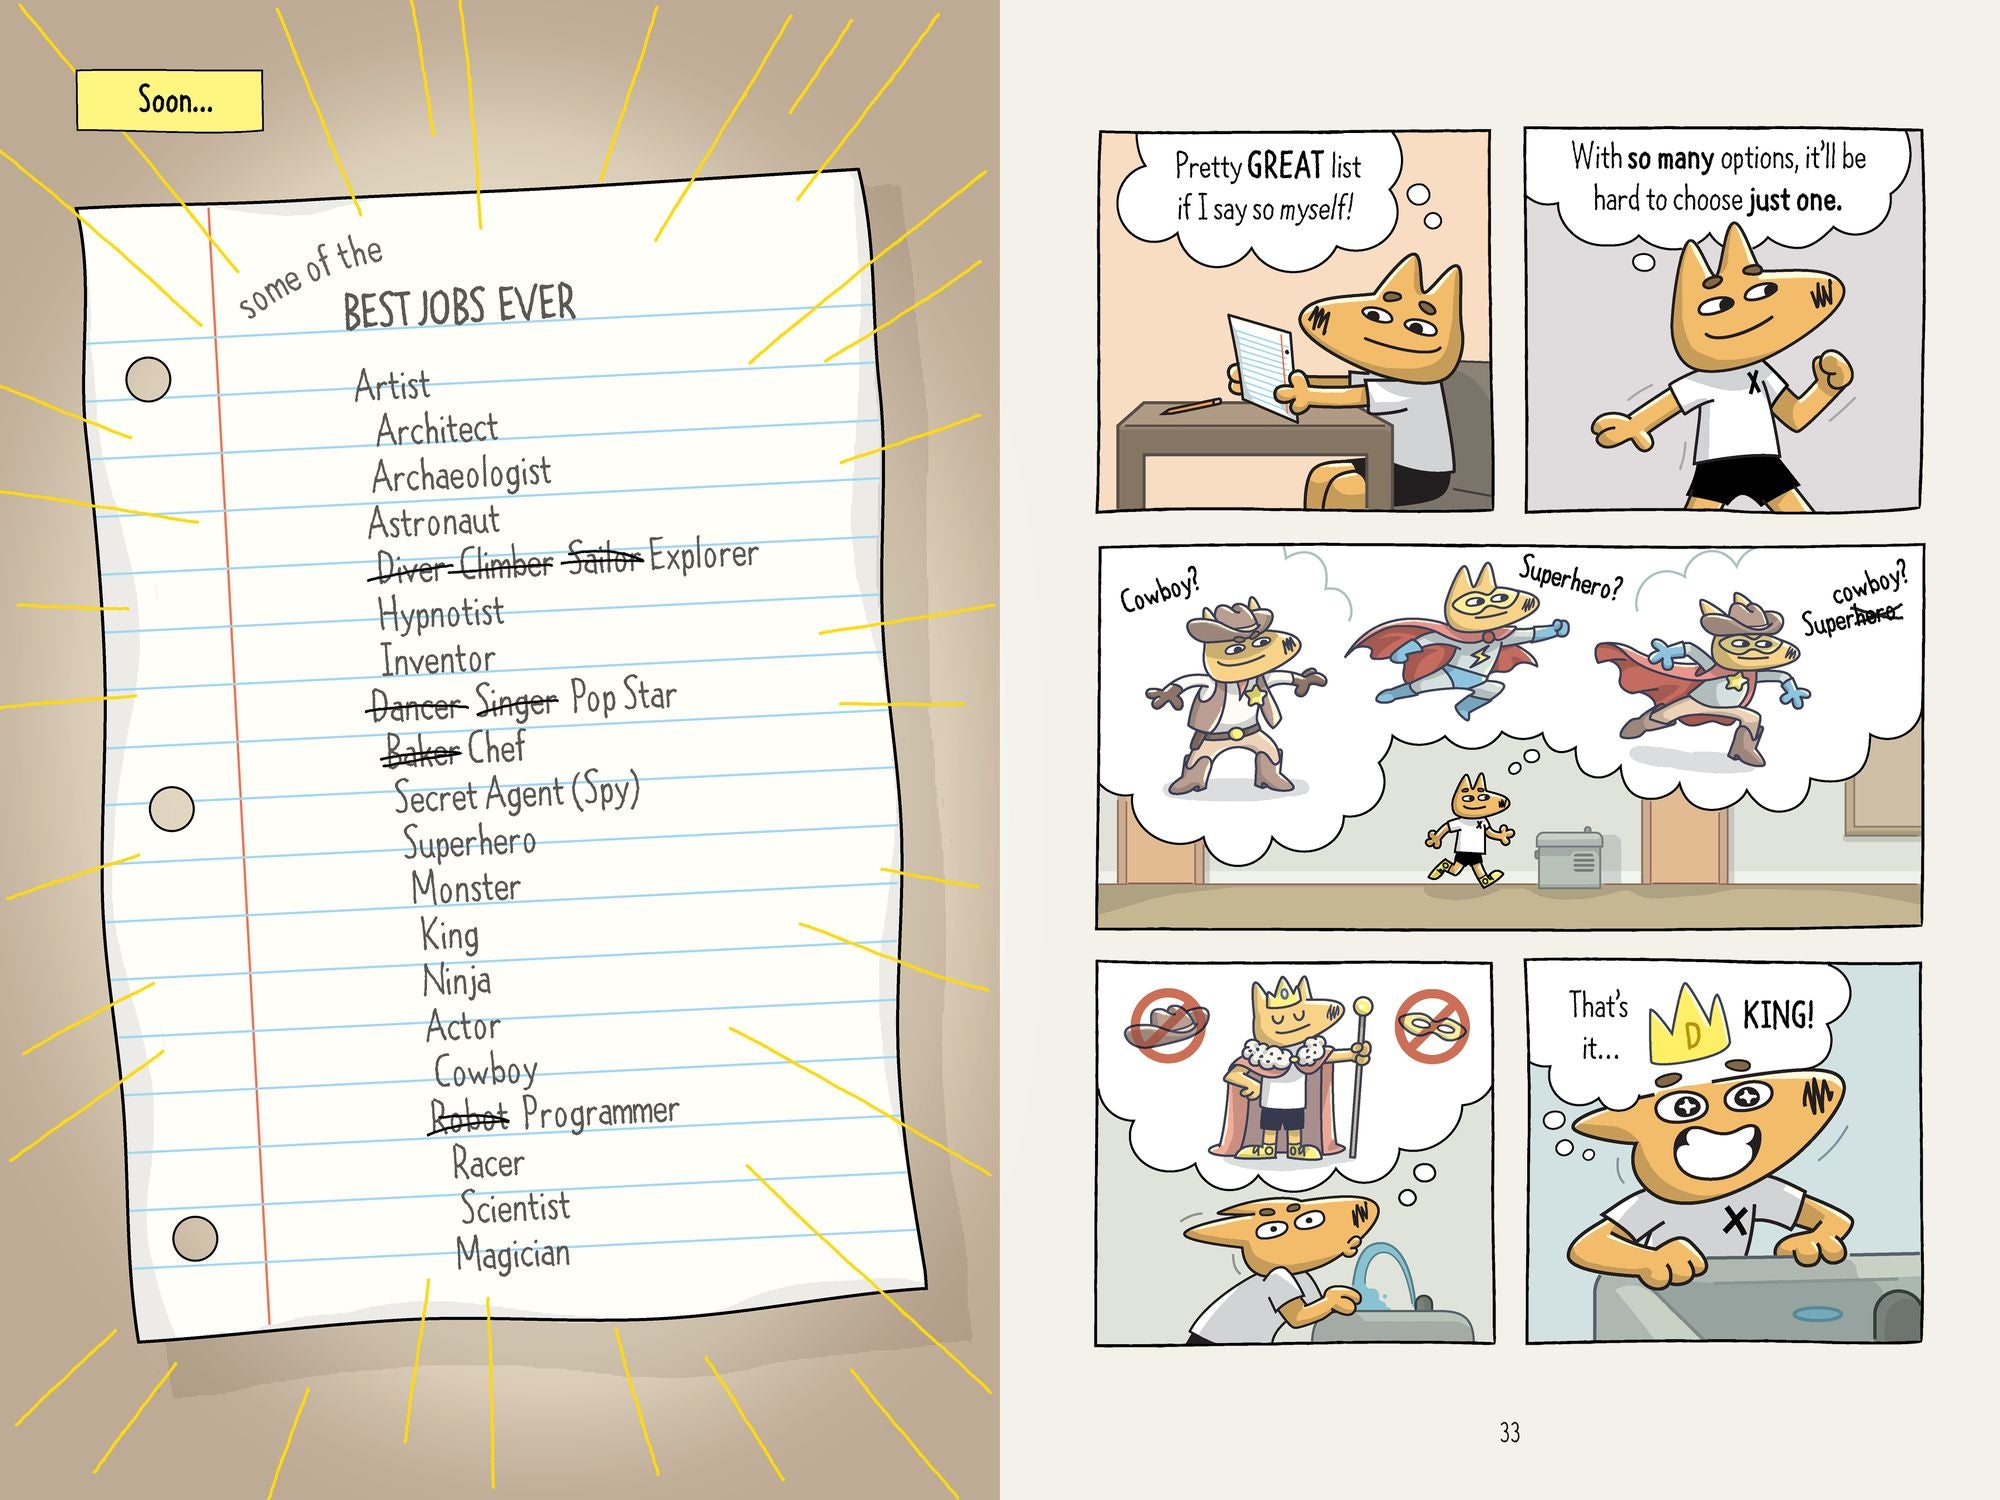 Soon...
some of the
BEST JOBS EVER
Artist
Architect
Archaeologist
Astronaut
Diver Climber Sailor Explorer
Hypnotist
Inventor
Dancer Singer Pop Star
Baker Chef
Secret Agent (Spy)
Superhero
Monster
King
Ninja
Actor
Cowboy
Robot Programmer
Racer
Scientist
Magician
Pretty GREAT list
if I say so myself!
With so many options, it'll be
hard to choose just one.
X
Cowboy?
Superhero?
cowboy?
Superhero
X
That's
it...
D
KING!
X
33